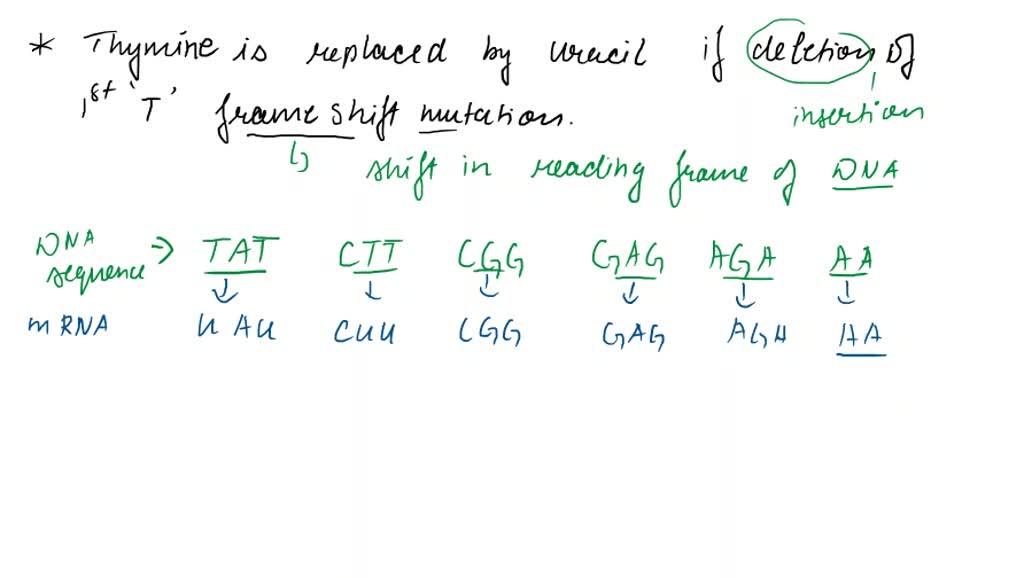 * Thymine is replaced by uracil if deletion of
1st 'T' frame shift mutation. insertion
↳ shift in reading frame of DNA
DNA sequence → TAT CTT CGG GAG AGA AA
mRNA UAU CUU CGG GAG AGA AA